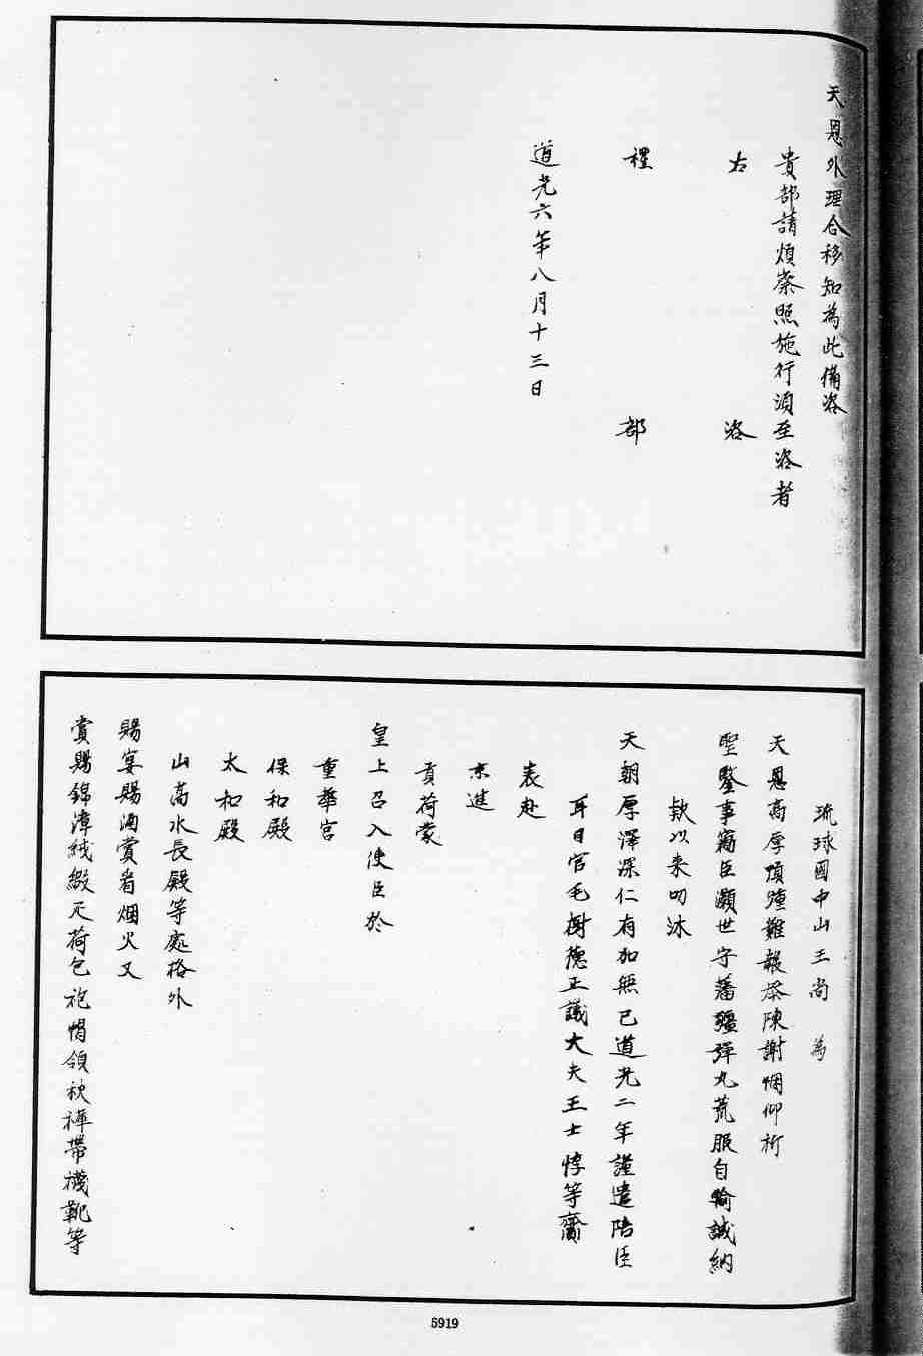 天恩外理合移知為此備咨
貴部請煩察照施行須至咨者
右咨
禮部
道光六年八月十三日
琉球國中山王尚 為
天恩高厚頂踵難報恭陳謝悃仰祈
聖鑒事竊臣灝世守藩疆彈丸荒服自輸誠納
款以來叨沐
天朝厚澤深仁有加無已道光二年謹遣陪臣
耳目官毛樹德正議大夫王士惇等齎
表赴
京進
貢荷蒙
皇上召入使臣於
重華宮
保和殿
太和殿
山高水長殿等處格外
賜宴賜酒賞看烟火又
賞賜錦漳絨緞疋荷包袍帽領袂褲帶襪靴等
5919